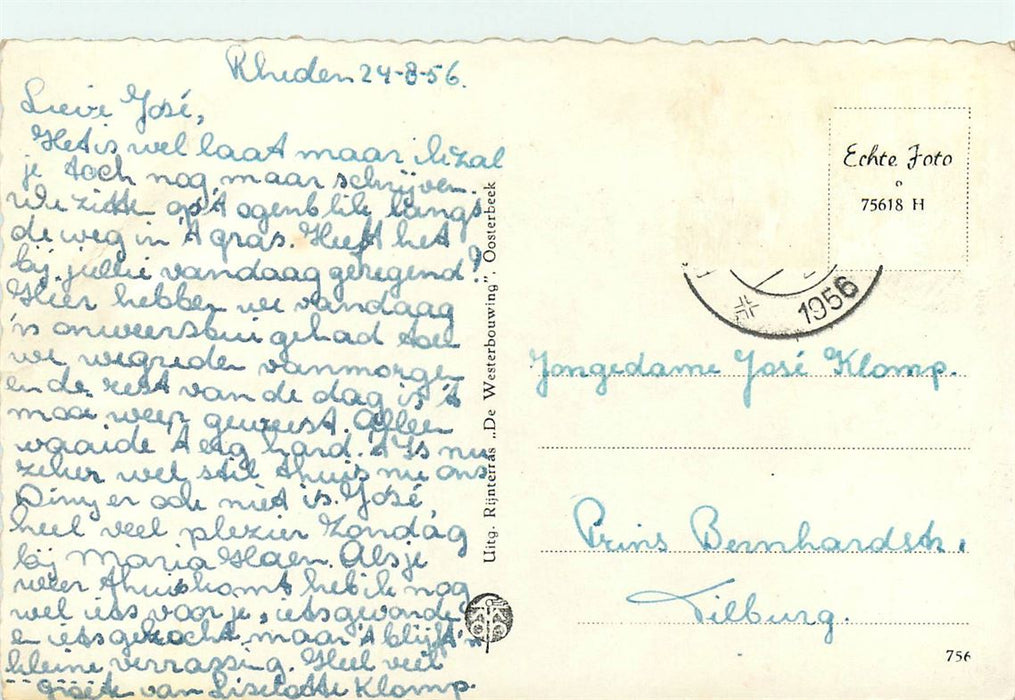 Rheden 24-8-56.
Lieve José,
Het is wel laat maar ik zal
je toch nog maar schrijven.
We zitten op 't ogenblik langs
de weg in 't gras. Heeft het
bij jullie vandaag geregend?
Hier hebben we vandaag
'n onweersbui gehad toen
we wegreden vanmorgen
en de rest van de dag is 't
mooi weer geweest. Alleen
waaide 't erg hard. 't Is nu
zeker wel stil thuis nu ons
Diny er ook niet is. José
heel veel plezier Zondag
bij Maria Haen. Als je
weer thuiskomt heb ik nog
wel iets voor je, iets gevonden
en iets gekocht, maar 't blijft 'n
kleine verrassing. Heel veel
groeten van Liselotte Klomp.
Uitg. Rijnterras „De Westerbouwing", Oosterbeek
Echte Foto
75618 H
1956
Jongedame José Klomp.
Prins Bernhardstr.
Tilburg.
756